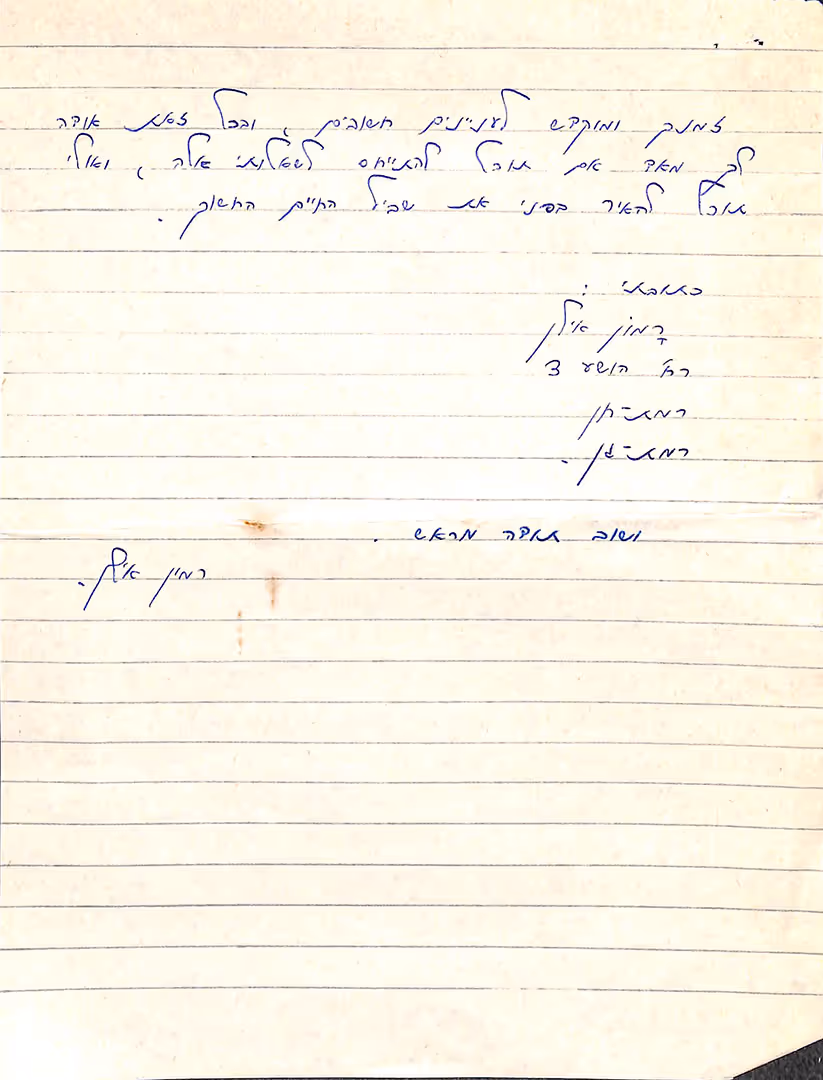 זמנך ומוקדש לעניינים חשובים, ובכל זאת אודה
לך מאד אם תוכל להתייחס לשאלותי אלה, ואולי
תוכל להאיר בפני את שביל החיים החשוך.
כתובתי:
רמון אילן
רח' הושע 3
רמת-חן
רמת-גן.
ושוב תודה מראש.
רמון אילן.